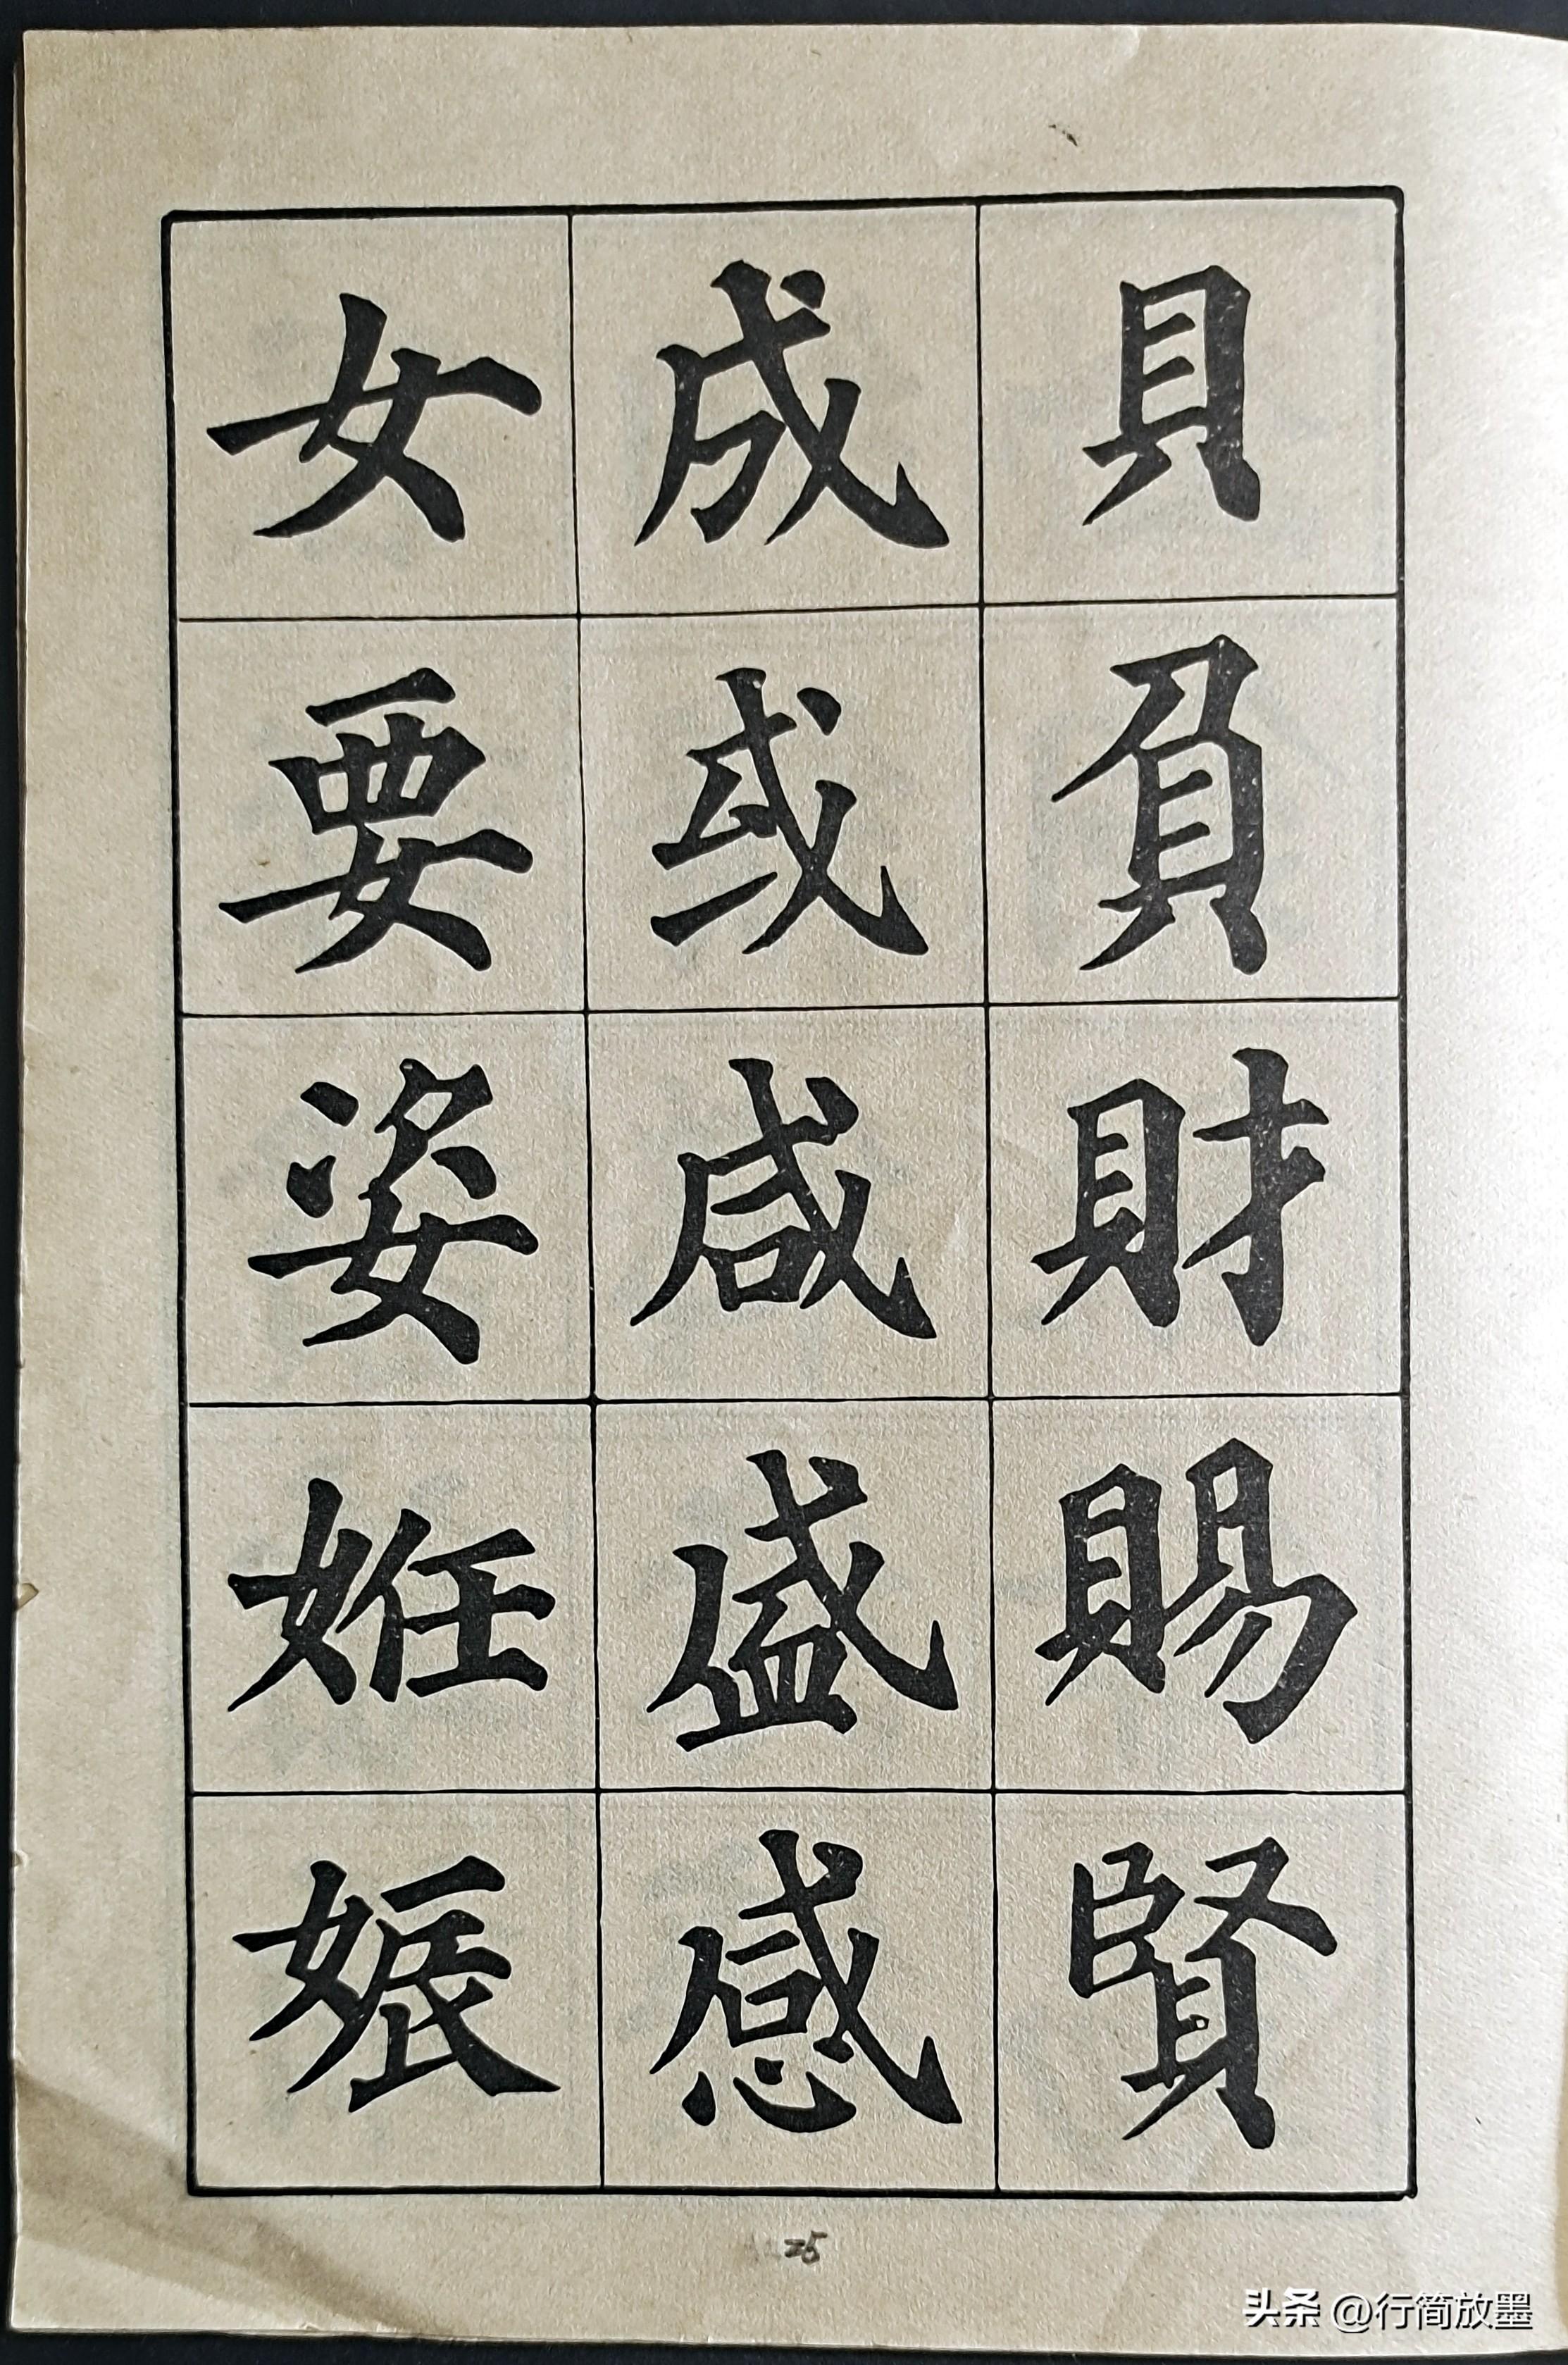 貝負財賜賢
成或咸盛感
女要姿妊娠
25
头条 @行简放墨